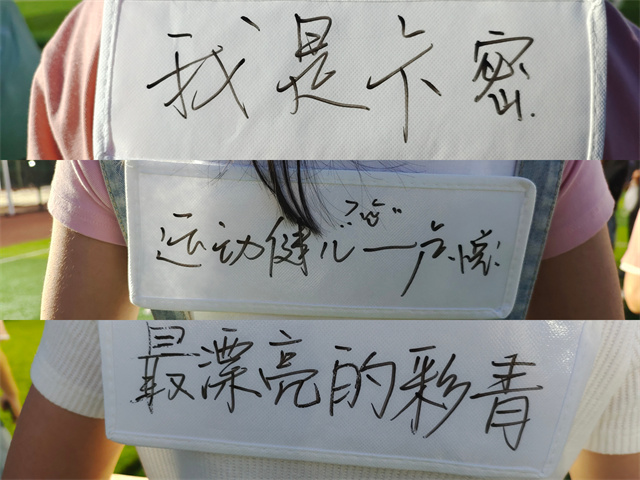 我是卞密
运动健儿一
最漂亮的彩青